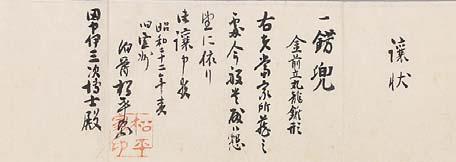 讓状
一 錆兜
金前立丸龍鍬形
右者當家所蔵之
處今般貴殿懇
望ニ依り
御讓申候
昭和十二年春
伯爵松平家
松平家印
田中伊三次博士殿